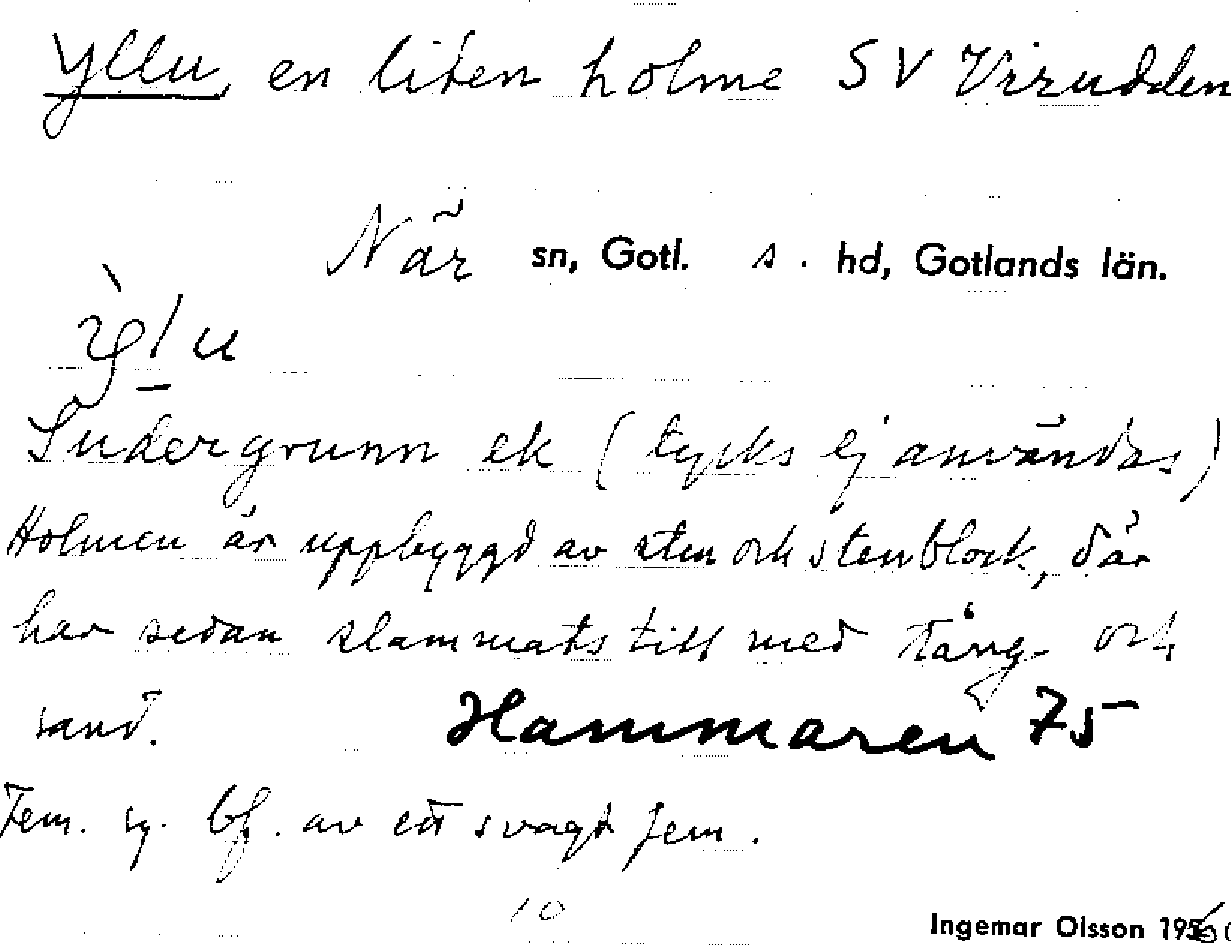 Yllu, en liten holme SV Virudden
När sn, Gotl. s. hd, Gotlands län.
Sudergrunn ek (tycks ej användas)
Holmen är uppbyggd av sten och stenblock, där
har sedan slammats till med tång och
sand. Hammaren 75
Fem. sg. bf. av ett svagt fem.
10
Ingemar Olsson 195